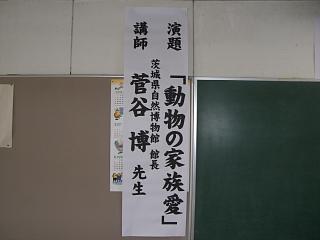 演題
「動物の家族愛」
茨城県自然博物館 館長
講師
菅谷 博 先生